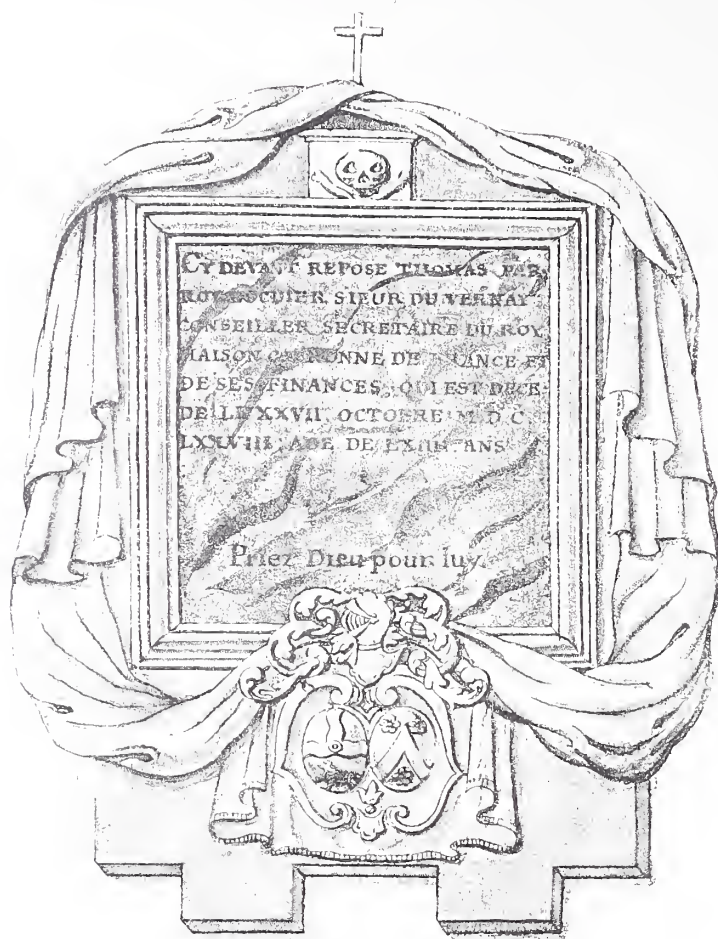 CY DEVANT REPOSE THOMAS PAR
ROY ESCUIER SIEUR DU VERNAY
CONSEILLER SECRETAIRE DU ROY
MAISON COURONNE DE FRANCE ET
DE SES FINANCES QUI EST DECE
DE LE XXVII OCTOBRE M D C
ADE DE ANS
Priez Dieu pour luy.